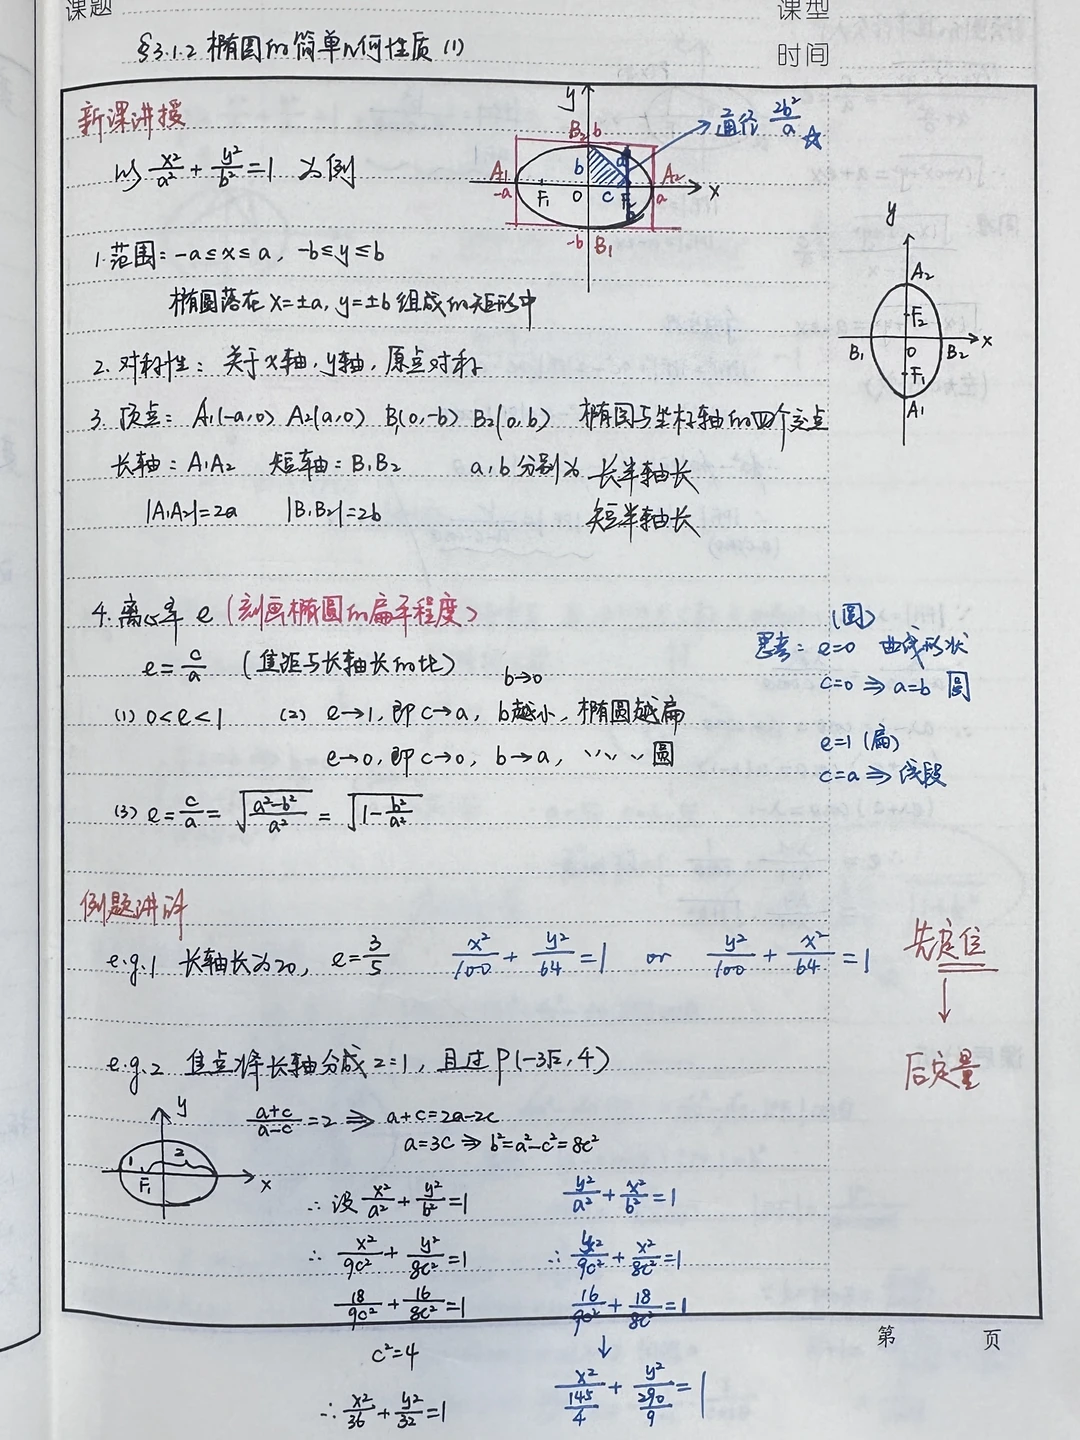 课题
课型
§3.1.2 椭圆的简单几何性质 (1)
时间
新课讲授
以 x²/a² + y²/b² = 1 为例
y
B₂ b
通径 2b²/a ☆
A₁ -a F₁ O b a c F₂ A₂ a x
-b B₁
1. 范围: -a≤x≤a, -b≤y≤b
椭圆落在 x=±a, y=±b 组成的矩形中
y
A₂
F₂
B₁ O B₂ x
F₁
A₁
2. 对称性: 关于x轴, y轴, 原点对称
3. 顶点: A₁(-a,0) A₂(a,0) B₁(0,-b) B₂(0,b) 椭圆与坐标轴的四个交点
长轴: A₁A₂ 短轴: B₁B₂ a, b 分别为 长半轴长
|A₁A₂|=2a |B₁B₂|=2b 短半轴长
4. 离心率 e (刻画椭圆的扁平程度)
e = c/a (焦距与长轴长的比)
b→0
(1) 0<e<1 (2) e→1, 即 c→a, b越小, 椭圆越扁
e→0, 即 c→0, b→a, 〃 圆
(3) e = c/a = √((a²-b²)/a²) = √(1-b²/a²)
(圆)
思考: e=0 曲线形状
c=0 ⇒ a=b 圆
e=1 (扁)
c=a ⇒ 线段
例题讲评
e.g.1 长轴长为20, e=3/5 x²/100 + y²/64 = 1 or y²/100 + x²/64 = 1
先定位
↓
后定量
e.g.2 焦点将长轴分成2:1, 且过P(-3√2, 4)
y
1 2
F₁ x
(a+c)/(a-c) = 2 ⇒ a+c=2a-2c
a=3c ⇒ b²=a²-c²=8c²
∴ 设 x²/a² + y²/b² = 1 y²/a² + x²/b² = 1
∴ x²/9c² + y²/8c² = 1 ∴ y²/9c² + x²/8c² = 1
18/9c² + 16/8c² = 1 16/9c² + 18/8c² = 1
c²=4 ↓
∴ x²/36 + y²/32 = 1 x²/(145/4) + y²/(290/9) = 1
第 页